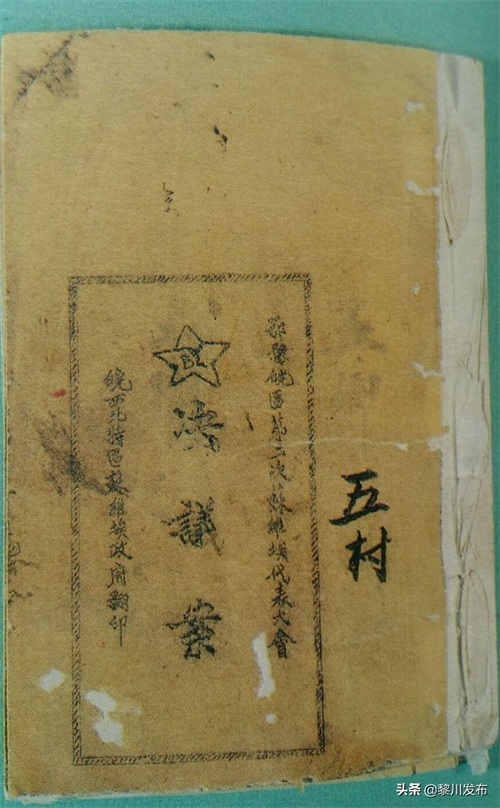 五村
鄂豫皖區第二次蘇維埃代表大會
決議案
皖西北特區蘇維埃政府翻印
头条 @黎川发布